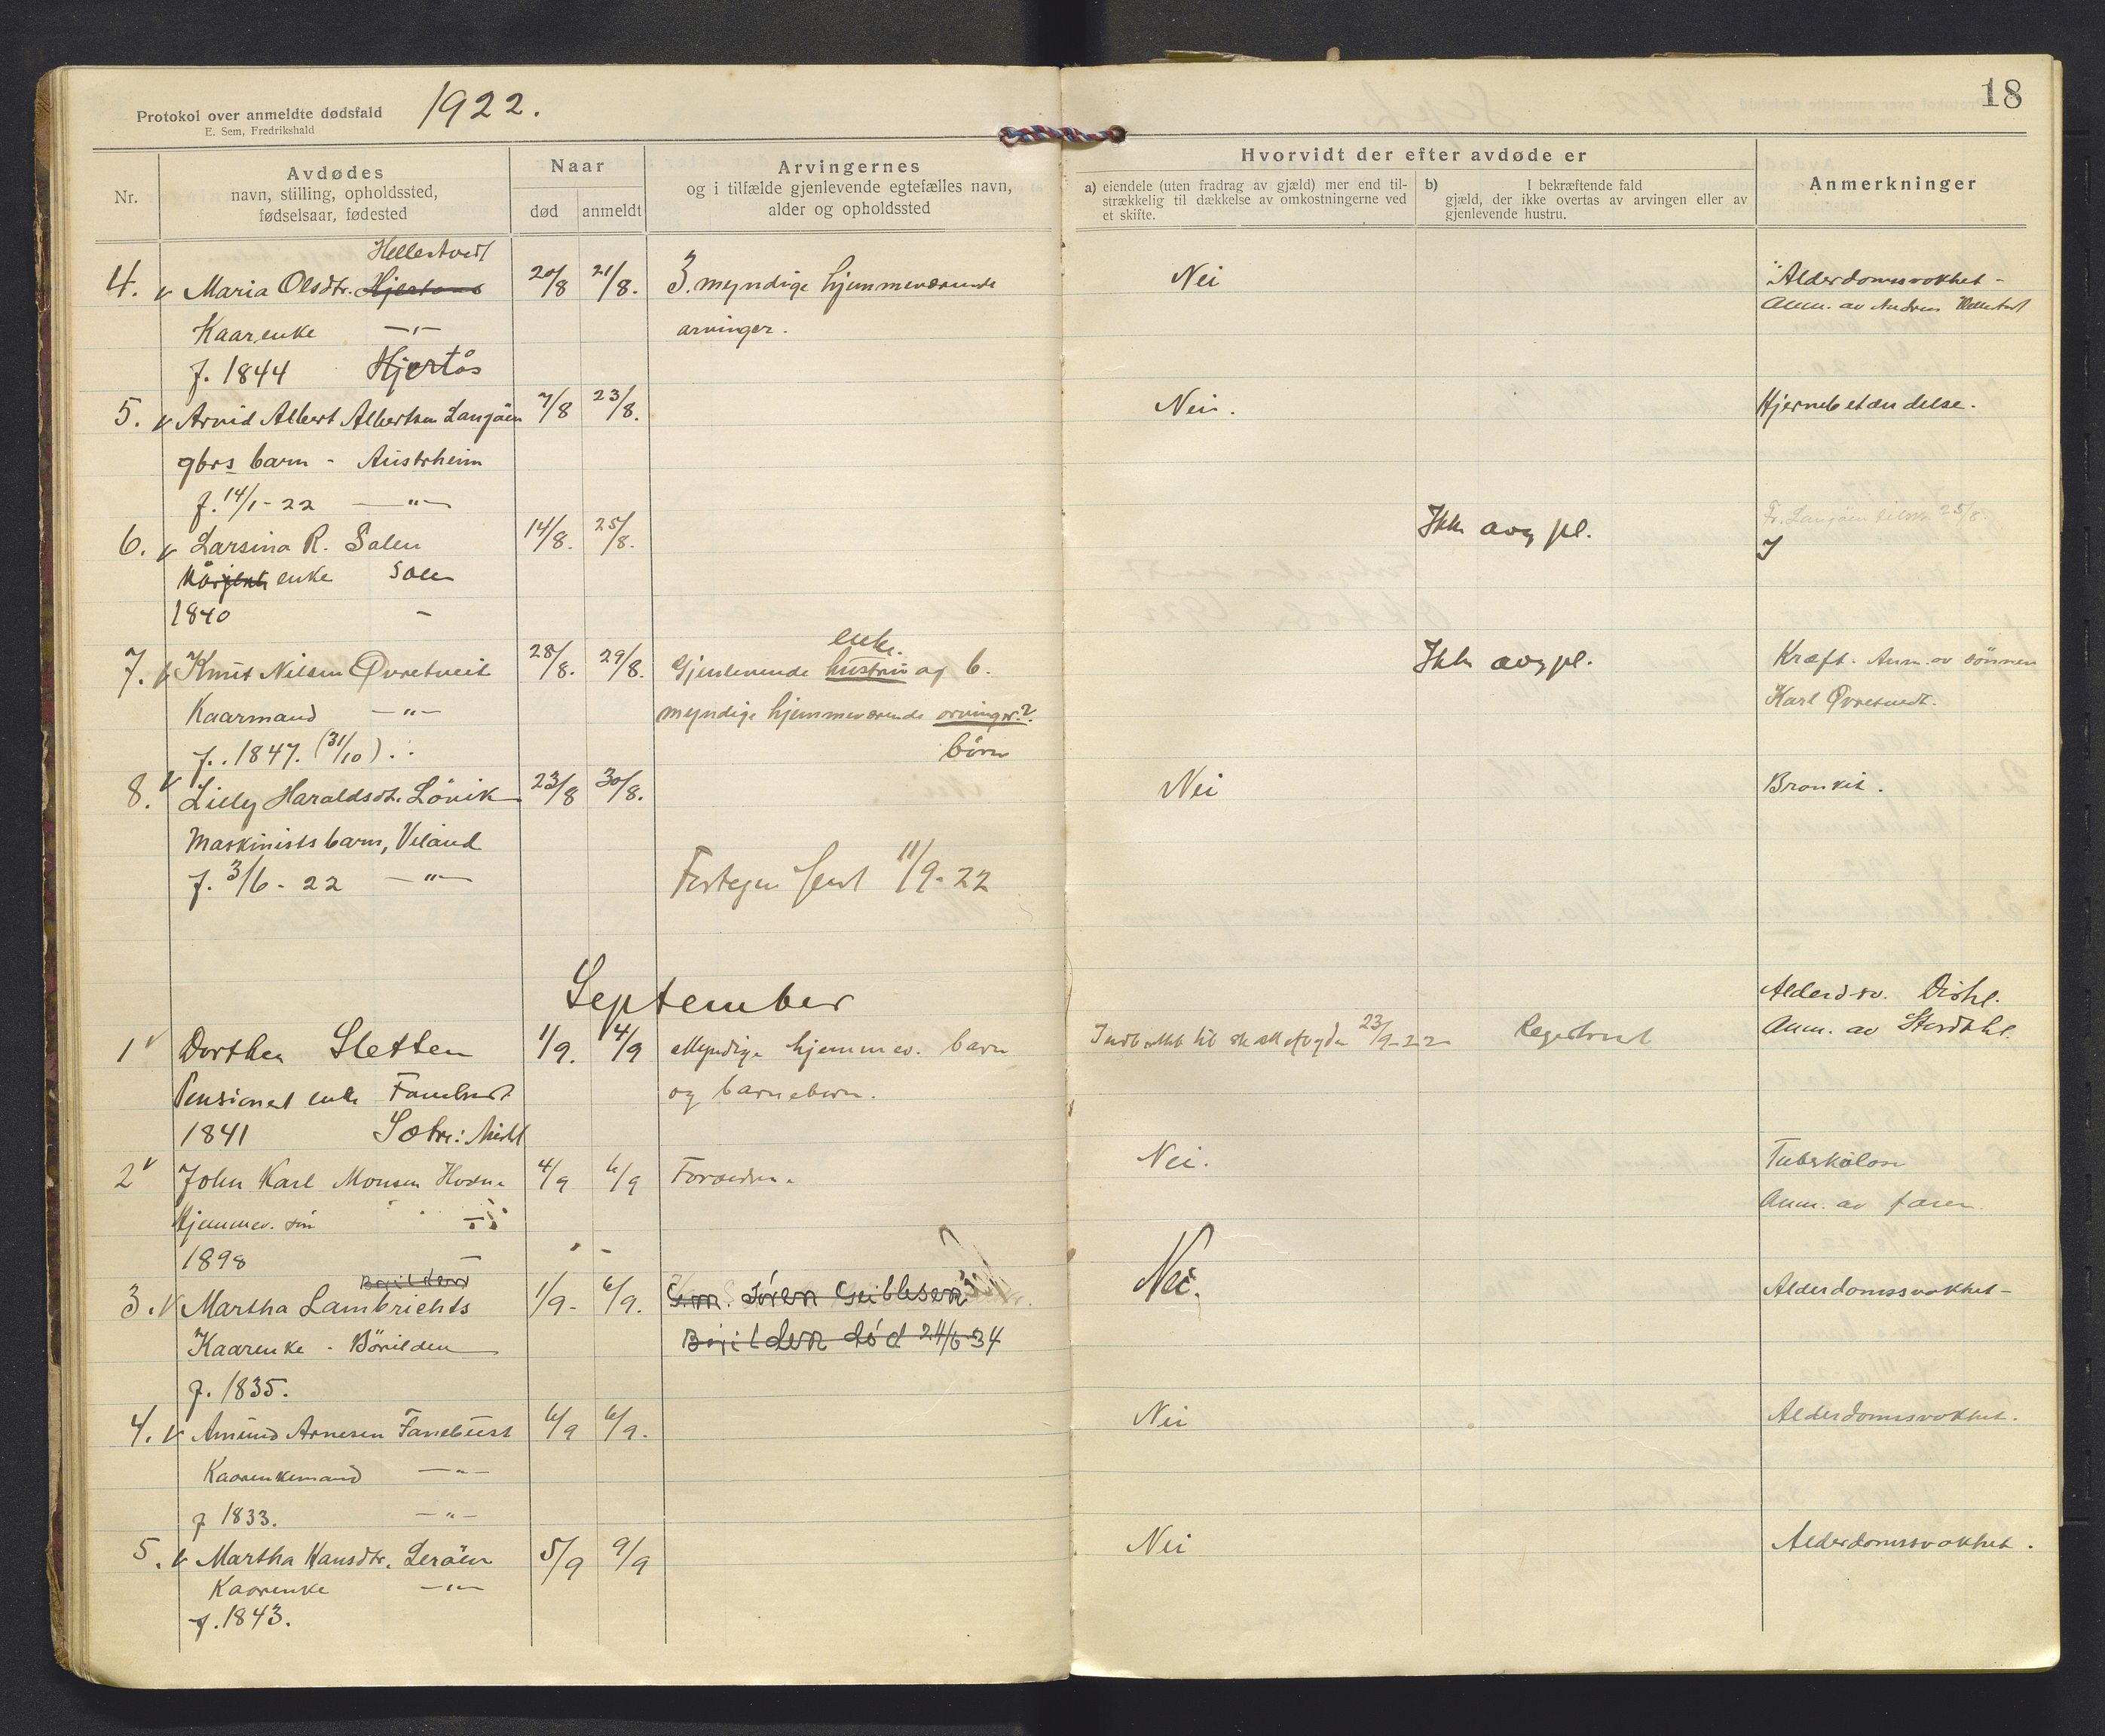 18
Protokol over anmeldte dødsfald 1922.
E. Sem, Fredrikshald
Nr.
Avdødes
navn, stilling, opholdssted,
fødselsaar, fødested
Naar
død anmeldt
Arvingernes
og i tilfælde gjenlevende egtefælles navn,
alder og opholdssted
Hvorvidt der efter avdøde er
a) eiendele (uten fradrag av gjæld) mer end til-
strækkelig til dækkelse av omkostningerne ved
et skifte.
b) I bekræftende fald
gjæld, der ikke overtas av arvingen eller av
gjenlevende hustru.
Anmerkninger
Hellestvedt
4. Maria Olsdtr. Hjertaas 20/8 21/8. 3 myndige hjemmeværende Nei Alderdomssvakhet -
Kaarenke -"- arvinger. Anm. av Andreas
f. 1844 Hjertås
5. Arvid Albert Albertsen Langöen 7/8 23/8. Nei. Hjernebetændelse.
gbrs barn - Austrheim
f. 14/1-22 -"-
Fr. Langöen 25/8
6. Larsina R. Solen 14/8. 25/8. Ikke avg pl.
enke Solen
1840 -
enke.
7. Knut Nilsen Øvretveit 28/8. 29/8. Gjenlevende hustru og 6. Ikke avg pl. Kræft. Anm. av sönnen
Kaarmand -"- myndige hjemmeværende arvinger.? Karl Øvretvedt.
f. 1847. (31/10). börn
8. Lilly Haraldsdt. Lövik 23/8 30/8. Nei Bronkit.
Maskinists barn, Viland
f. 3/6-22 -"- sent 11/9-22
September
Alderdsv.
1 Dorthea Sletten 1/9. 4/9 Myndige hjemmev. barn 23/9-22 Registrert Anm. av
Pensionert enke og barnebarn.
1841
2 John Karl Monsen 4/9 6/9 Foreldre. Nei. Tuberkulose
Hjemmev. sön -"- Anm. av faren
1898 -
Börilden
3. Martha Lambrichts 1/9- 6/9. Gm. Sören Nei. Alderdomssvakhet -
Kaarenke - Börilden Börilden död 24/6-34
f. 1835.
4. Amund Arnesen Fanebust 6/9 6/9. Nei Alderdomssvakhet.
Kaarenkemand -"-
f 1833. -"-
5. Martha Hansdtr. Leröen 5/9 9/9 Nei Alderdomssvakhet.
Kaarenke -"-
f. 1843.